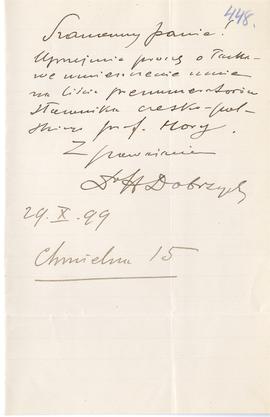 448.
Szanowny Panie.
Uprzejmie proszę o łaska-
we umieszczenie mnie
na liście prenumeratorów
Słownika czesko-pol-
skiego prof. Hory.
Z poważaniem
Dr H Dobrzycki
29. X. 99
Chmielna 15